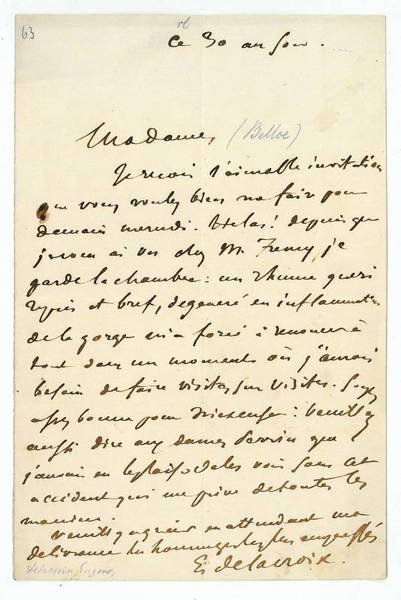 63
ce 30 au soir.
Madame, (Belloc)
Je reçois l'aimable invitation
que vous voulez bien me faire pour
demain mercredi. Helas! depuis que
je vous ai vu chez M. Fremy, je
garde la chambre: un rhume guéri
et bref, degeneré en inflammation
de la gorge m'a forcé à renoncer à
tout dans un moment où j'aurais
besoin de faire visites sur visites. Soyez
assez bonne pour m'excuser: veuillez
aussi dire aux dames que
j'aurais eu le plaisir de les voir sans cet
accident qui me prive de toutes les
manières.
Veuillez agréer en attendant ma
delivrance les hommages les plus empressés
E. delacroix.